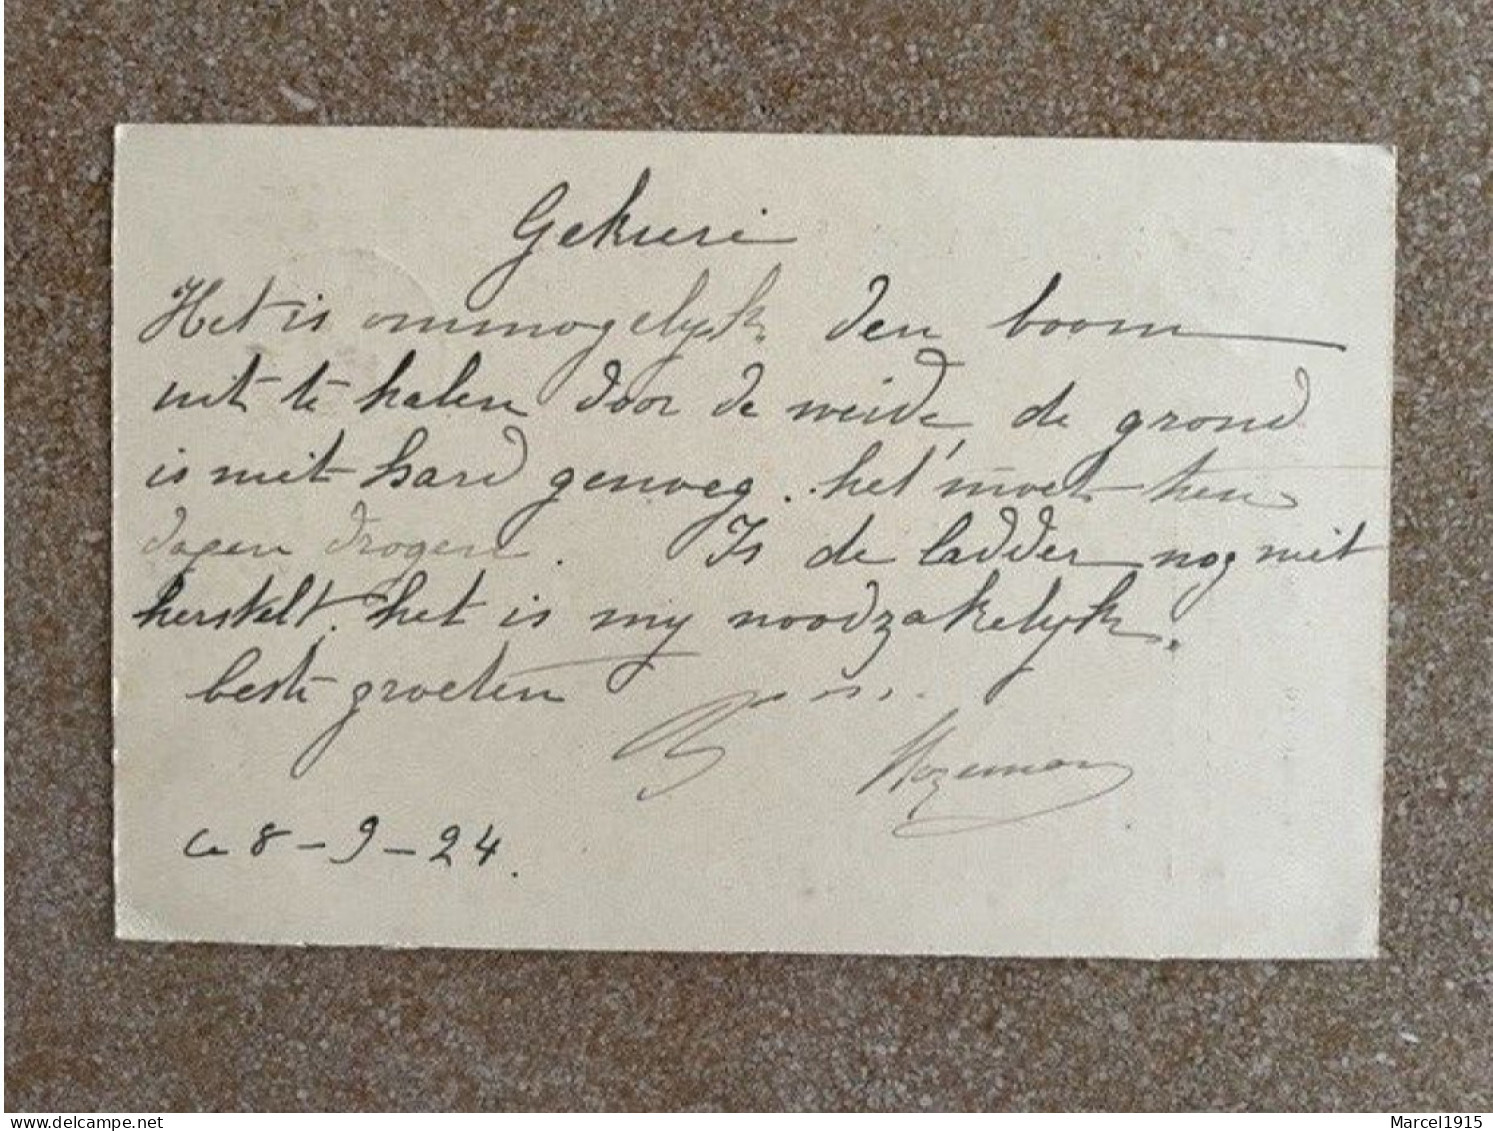 Het is onmogelyk den boom
uit te halen door de weide, de grond
is niet hard genoeg. het moet tien
dagen drogen. Is de ladder nog niet
herstelt. het is my noodzakelyk.
beste groeten
ce 8-9-24.
Marcel1915